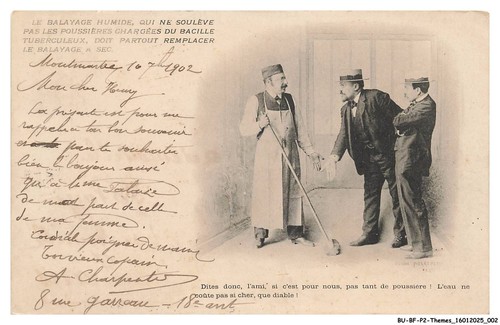 LE BALAYAGE HUMIDE, QUI NE SOULÈVE
PAS LES POUSSIÈRES CHARGÉES DU BACILLE
TUBERCULEUX, DOIT PARTOUT REMPLACER
LE BALAYAGE A SEC.
Montmartre 10 7bre 1902
Mon cher Henry
La présente est pour me
rappeler à ton bon souvenir
pour te souhaiter
bien le bonjour aussi
qu'à
de ma part de celle
de ma femme.
Cordiale poignée de main
Ton vieux copain
A Charpentier
8 rue Garreau - 18e arrt
Dites donc, l'ami, si c'est pour nous, pas tant de poussière ! L'eau ne
coûte pas si cher, que diable !
BU-BF-P2-Themes_16012025_002